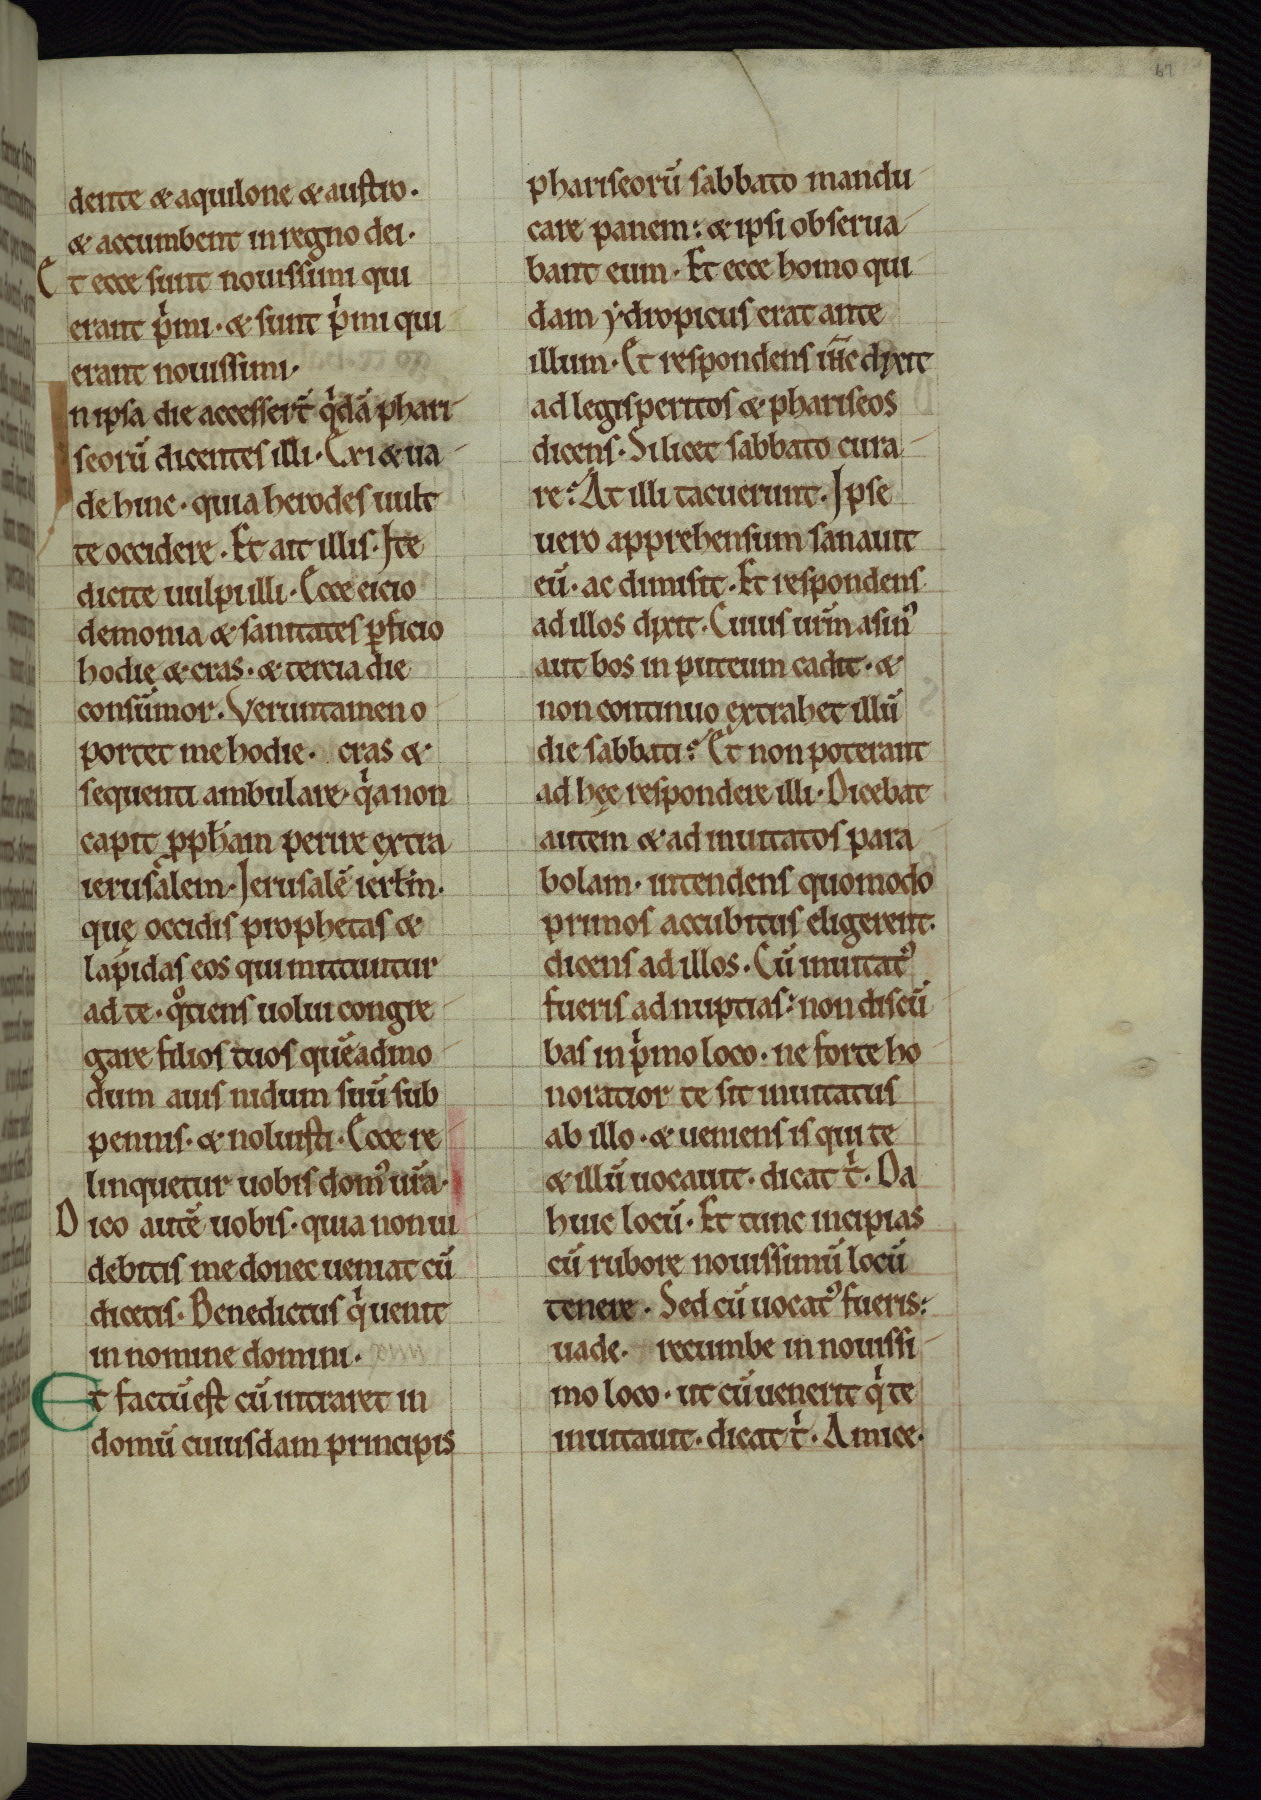 67
dente & aquilone & austro.
& accumbent in regno dei.
Et ecce sunt nouissimi qui
erant pͥmi. & sunt pͥmi qui
erant nouissimi.
In ipsa die accesser̄t qͥdā phari
seorū dicentes illi. Exi & ua
de hinc. quia herodes uult
te occidere. Et ait illis. Ite
dicite uulpi illi. Ecce eicio
demonia & sanitates ꝑficio
hodię & cras. & tercia die
consūmor. Veruntamen o
portet me hodie. cras &
sequenti ambulare. qͥa non
capit ꝓpħam perire extra
ierusalem. Jerusalē ierłm.
quę occidis prophetas &
lapidas eos qui mittuntur
ad te. qͦtiens uolui congre
gare filios tuos quēadmo
dum auis nidum suū sub
pennis. & noluisti. Ecce re
linquetur uobis domꝰ ur̄a.
Dico autē uobis. quia non ui
debitis me donec ueniat cū
dicetis. Benedictus qͥ uenit
in nomine domini.
Et factū est cū intraret in
domū cuiusdam principis
phariseorū sabbato mandu
care panem: & ipsi obserua
bant eum. Et ecce homo qui
dam ydropicus erat ante
illum. Et respondens ih̄c dixit
ad legisperitos & phariseos
dicens. Si licet sabbato cura
re? At illi tacuerunt. Ipse
uero apprehensum sanauit
eū. ac dimisit. Et respondens
ad illos dixit. Cuius ur̄m asinꝰ
aut bos in puteum cadit. &
non continuo extrahet illū
die sabbati? Et non poterant
ad hęc respondere illi. Dicebat
autem & ad inuitatos para
bolam. intendens quomodo
primos accubitus eligerent.
dicens ad illos. Cū inuitatꝰ
fueris ad nuptias: non discū
bas in pͥmo loco. ne forte ho
noratior te sit inuitatus
ab illo. & ueniens is qui te
& illū uocauit. dicat tͥ. Da
huic locū. Et tunc incipias
cū rubore nouissimū locū
tenere. Sed cū uocatꝰ fueris:
uade. recumbe in nouissi
mo loco. ut cū uenerit qͥ te
inuitauit. dicat tͥ. Amice.